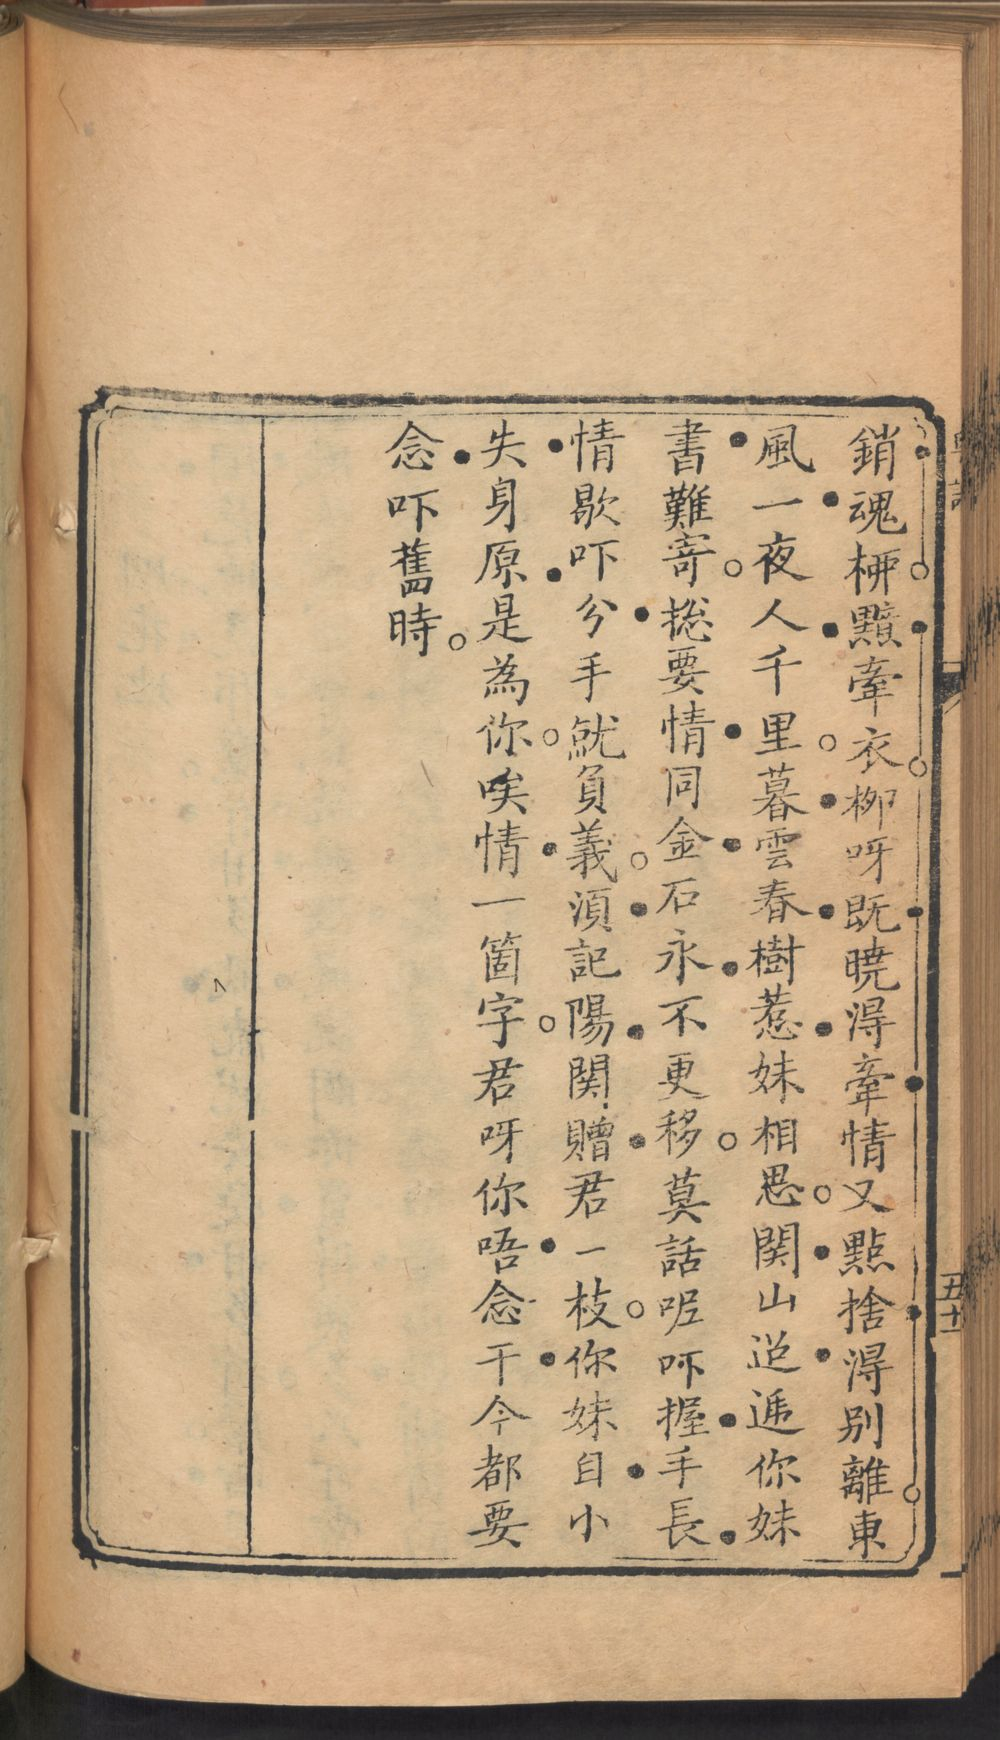 銷魂柳黯牽衣柳呀既曉得牽情又點捨得别離東
風一夜人千里暮雲春樹惹妹相思関山迢遞你妹
書難寄捴要情同金石永不更移莫話呢吓握手長
情歇吓分手就負義須記陽関贈君一枝你妹自小
失身原是為你唉情一箇字君呀你唔念干今都要
念吓舊時
五十一